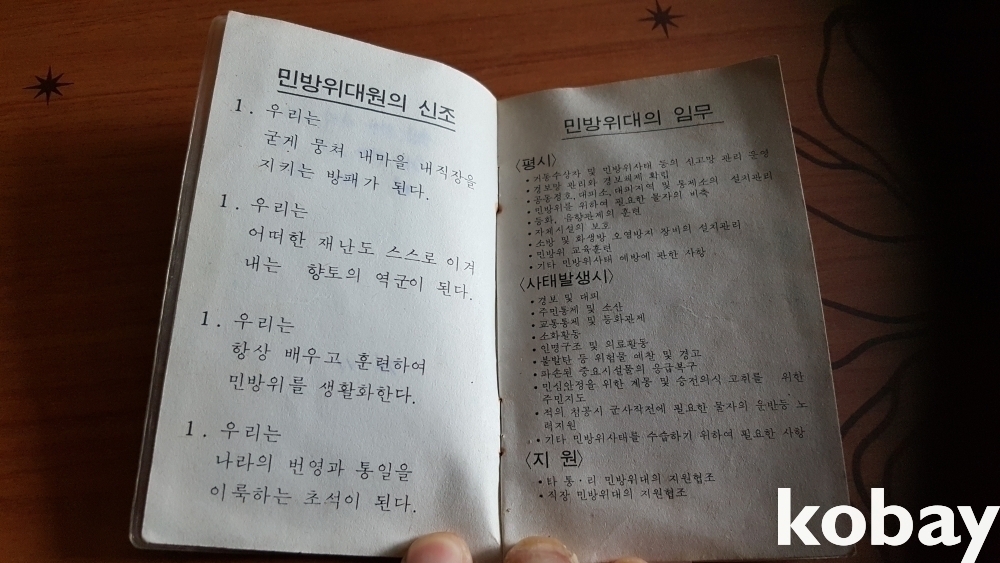 민방위대원의 신조
1. 우리는
굳게 뭉쳐 내마을 내직장을
지키는 방패가 된다.
1. 우리는
어떠한 재난도 스스로 이겨
내는 향토의 역군이 된다.
1. 우리는
항상 배우고 훈련하여
민방위를 생활화한다.
1. 우리는
나라의 번영과 통일을
이룩하는 초석이 된다.
민방위대의 임무
〈평시〉
• 거동수상자 및 민방위사태 등의 신고망 관리 운영
• 경보망 관리와 경보체제 확립
• 공동정호, 대피소, 대피지역 및 통제소의 설치관리
• 민방위를 위하여 필요한 물자의 비축
• 등화, 음향관제의 훈련
• 자체시설의 보호
• 소방 및 화생방 오염방지 장비의 설치관리
• 민방위 교육훈련
• 기타 민방위사태 예방에 관한 사항
〈사태발생시〉
• 경보 및 대피
• 주민통제 및 소산
• 교통통제 및 등화관제
• 소화활동
• 인명구조 및 의료활동
• 불발탄 등 위험물 예찰 및 경고
• 파손된 중요시설물의 응급복구
• 민심안정을 위한 계몽 및 승전의식 고취를 위한
주민지도
• 적의 침공시 군사작전에 필요한 물자의 운반등 노
력지원
• 기타 민방위사태를 수습하기 위하여 필요한 사항
〈지원〉
• 타 통·리 민방위대의 지원협조
• 직장 민방위대의 지원협조
kobay